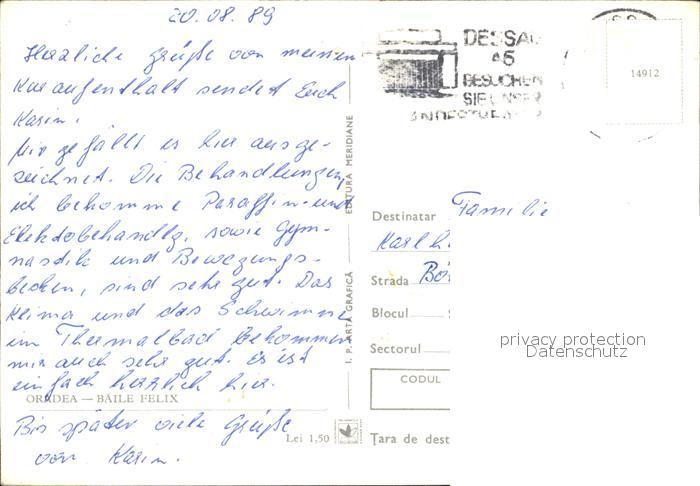 20.08.89
Herzliche Grüße von meinem
Kuraufenthalt sendet Euch
Karin.
Mir gefällt es hier ausge-
zeichnet. Die Behandlungen,
ich bekomme Paraffin- und
Elektobehandlg, sowie Gym-
nasdik und Bewegungs-
becken, sind sehr gut. Das
Klima und das Schwimmen
im Thermalbad bekommen
mir auch sehr gut. Es ist
einfach herrlich hier.
ORADEA — BĂILE FELIX
Bis später viele Grüße
von Karin.
Lei 1,50
I. P. ARTA GRAFICĂ
EDITURA MERIDIANE
DESSAU
45
BESUCHEN
SIE UNSER
14912
Destinatar Familie
Karl
Strada
Blocul
Sectorul
CODUL
Țara de dest
privacy protection
Datenschutz